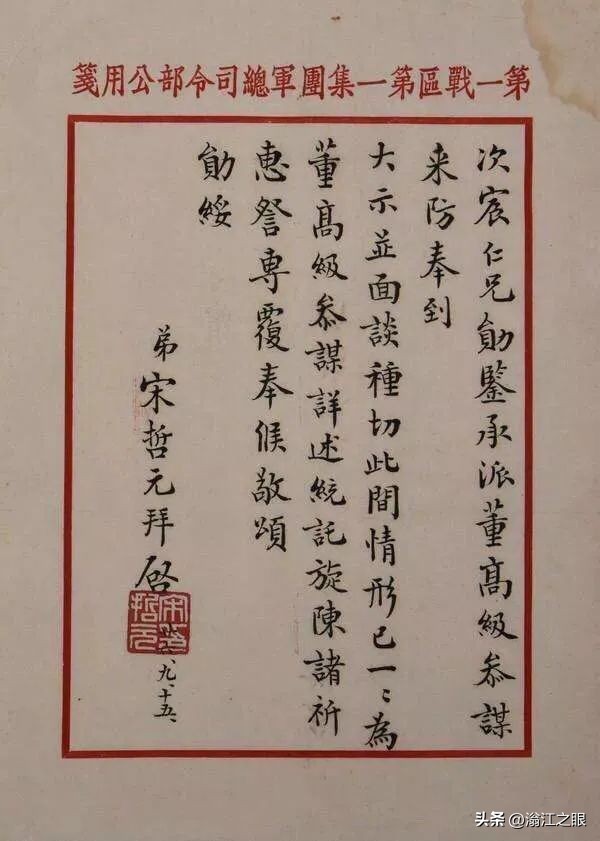 第一戰區第一集團軍總司令部公用箋
次宸仁兄勛鑒承派董高級參謀
来防奉到
大示並面談種切此間情形已一〻為
董高級參謀詳述統託旋陳諸祈
惠詧専覆奉候敬頌
勛綏
弟宋哲元拜啓
宋印哲元
廿六、九、十五、
头条 @滃江之眼